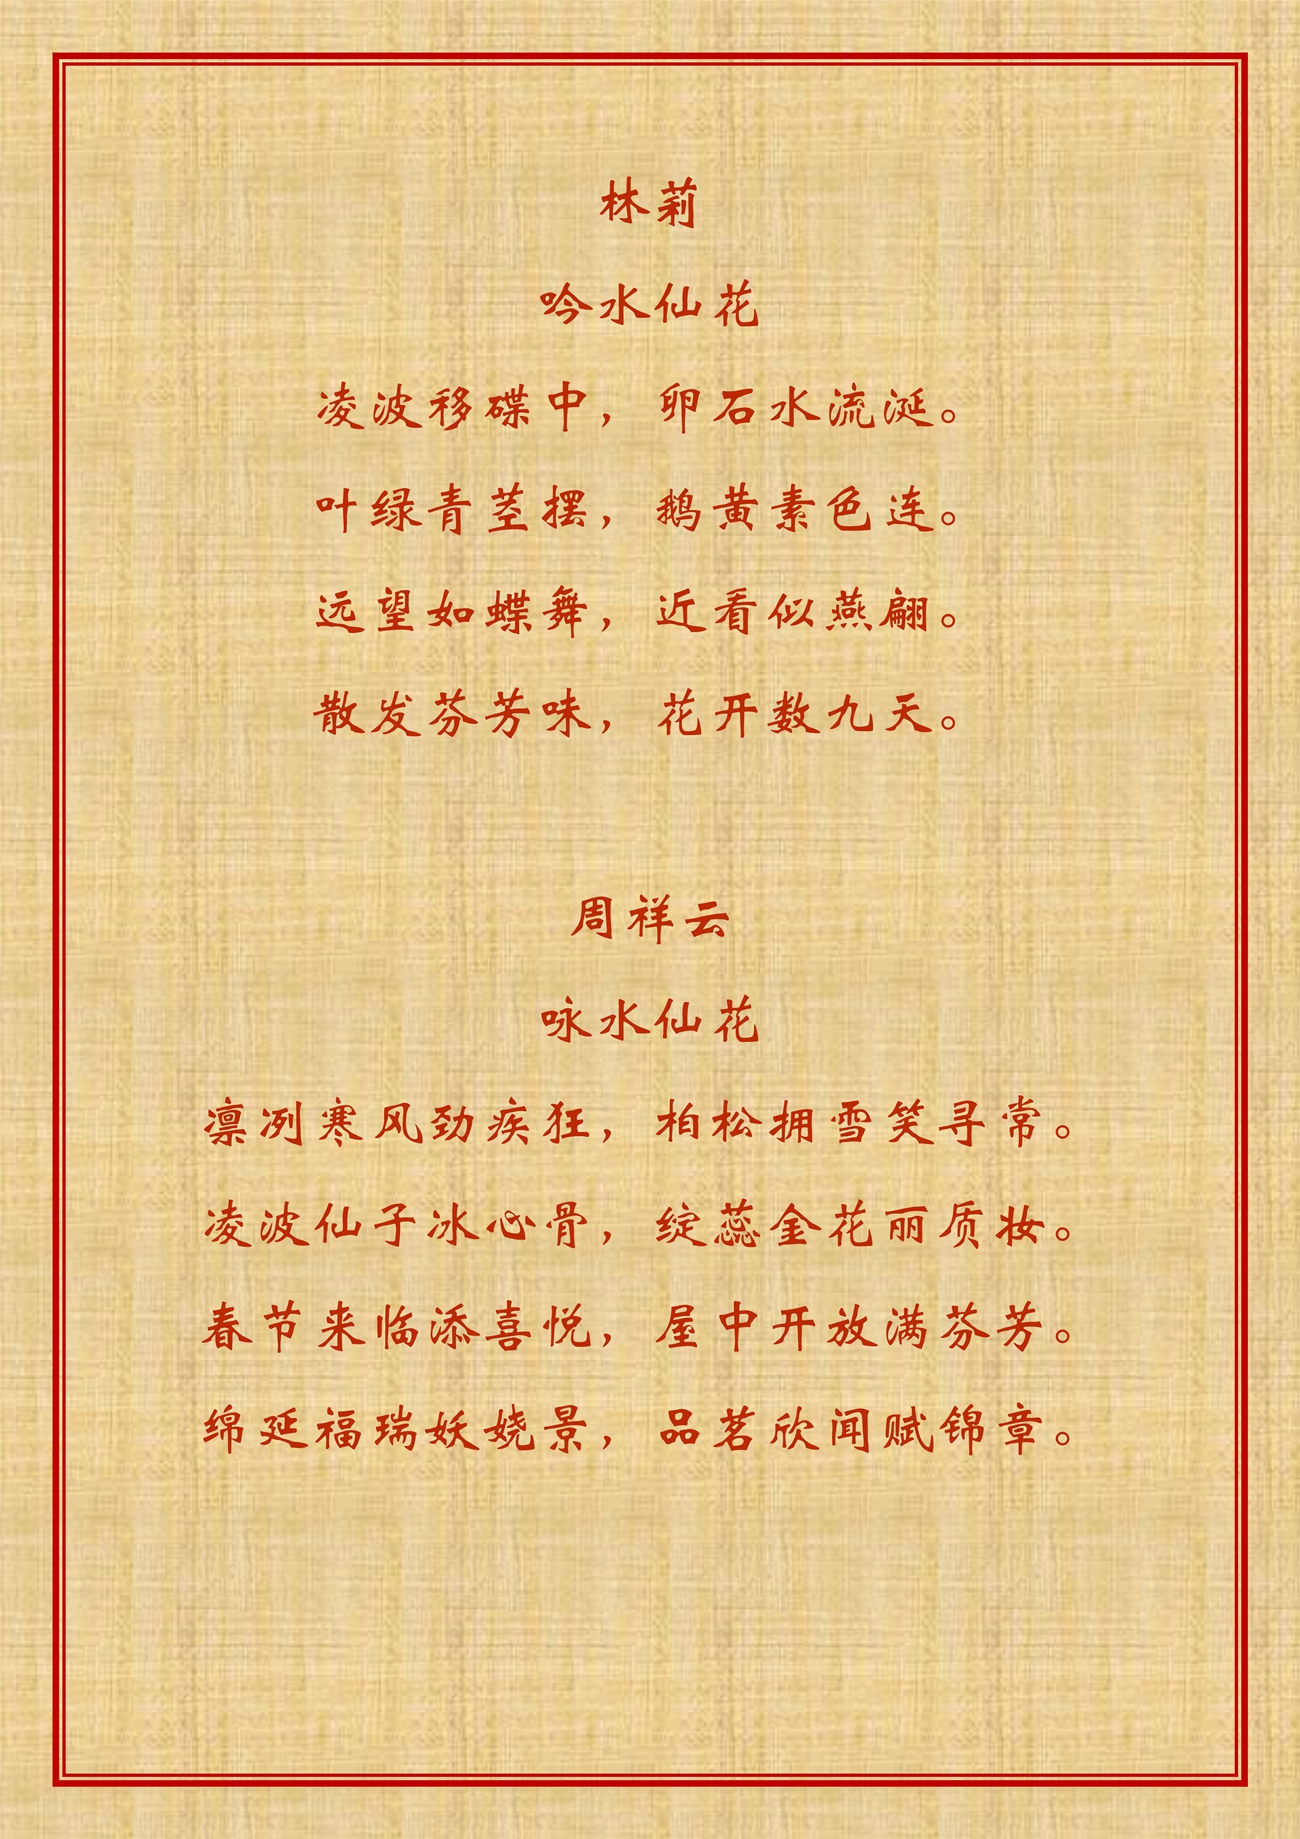 林莉
吟水仙花
凌波移碟中，卵石水流涎。
叶绿青茎摆，鹅黄素色连。
远望如蝶舞，近看似燕翩。
散发芬芳味，花开数九天。
周祥云
咏水仙花
凛冽寒风劲疾狂，柏松拥雪笑寻常。
凌波仙子冰心骨，绽蕊金花丽质妆。
春节来临添喜悦，屋中开放满芬芳。
绵延福瑞妖娆景，品茗欣闻赋锦章。